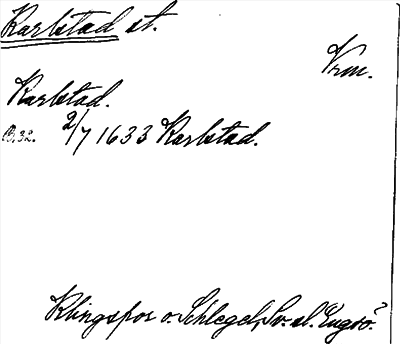 Karlstad st.
Vrm.
Karlstad.
2/7 1633 Karlstad.
Klingspor o. Schlegel, Sv. sl. Engsö?